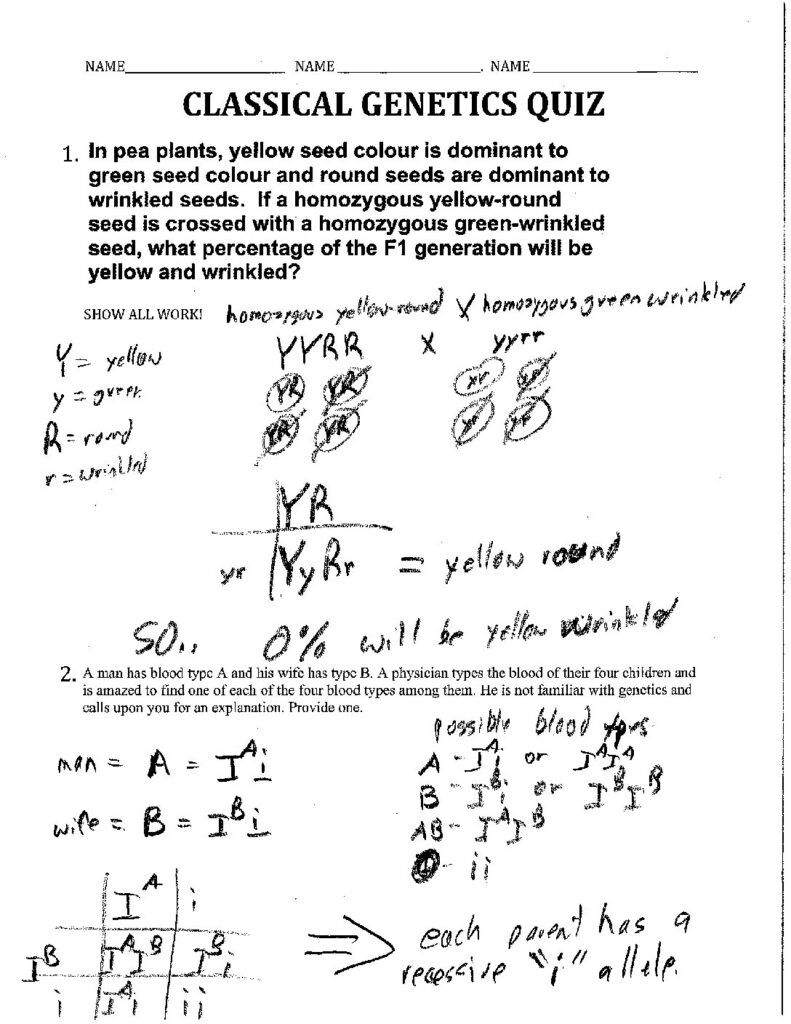 NAME NAME NAME
CLASSICAL GENETICS QUIZ
1. In pea plants, yellow seed colour is dominant to
green seed colour and round seeds are dominant to
wrinkled seeds. If a homozygous yellow-round
seed is crossed with a homozygous green-wrinkled
seed, what percentage of the F1 generation will be
yellow and wrinkled?
SHOW ALL WORK! homozygous yellow-round X homozygous green wrinkled
Y = yellow YYRR X yyrr
y = green YR YR yr yr
R = round YR YR yr yr
r = wrinkled
YR
yr YyRr = yellow round
SO.. 0% will be yellow wrinkled
2. A man has blood type A and his wife has type B. A physician types the blood of their four children and
is amazed to find one of each of the four blood types among them. He is not familiar with genetics and
calls upon you for an explanation. Provide one.
possible blood types
man = A = Iᴬi A - Iᴬi or IᴬIᴬ
B - Iᴮi or IᴮIᴮ
wife = B = Iᴮi AB - IᴬIᴮ
O - ii
Iᴬ i
Iᴮ IᴬIᴮ Iᴮi
i Iᴬi ii
each parent has a
recessive "i" allele.